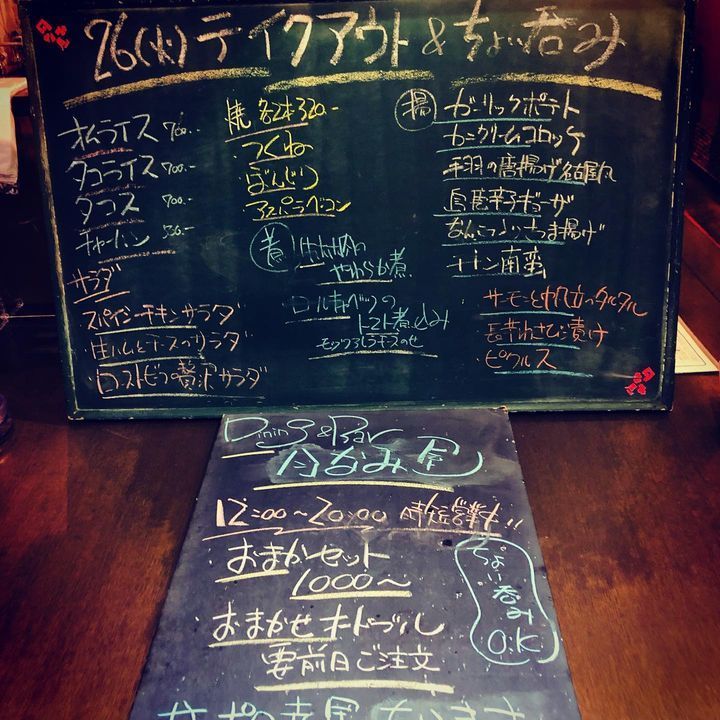 26(火)テイクアウト&ちょい呑み
オムライス 700.-
タコライス 700.-
タコス 700.-
チャーハン 550.-
サラダ
スパイシーチキンサラダ
生ハムとチーズのサラダ
ローストビーフの贅沢サラダ
焼 各2本320.-
つくね
ぼんじり
アスパラベーコン
煮
やわらか煮
ロールキャベツの
トマト煮込み
モッツァレラチーズのせ
揚
ガーリックポテト
カニクリームコロッケ
手羽の唐揚げ名古屋風
鳥唐辛子ギョーザ
なんこつ入りさつま揚げ
チキン南蛮
サーモンと帆立のタルタル
長芋わさび漬け
ピクルス
Dining & Bar
今なみ屋
12:00~20:00 時短営業中!!
おまかせセット
1000~
おまかせオードブル
要前日ご注文
ちょい呑み
O.K